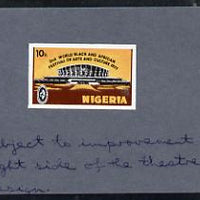 10k
2nd WORLD BLACK AND AFRICAN
FESTIVAL OF ARTS AND CULTURE 1977
NIGERIA
bject to improvement
ght side of the theatre
sign.